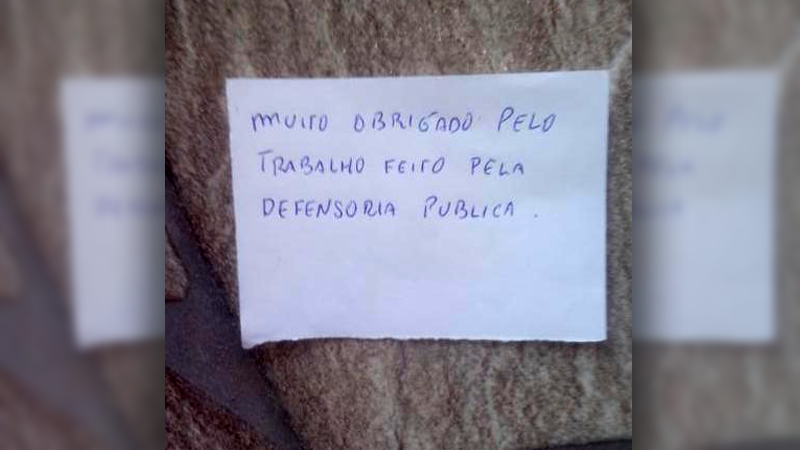 MUITO OBRIGADO PELO
TRABALHO FEITO PELA
DEFENSORIA PUBLICA.